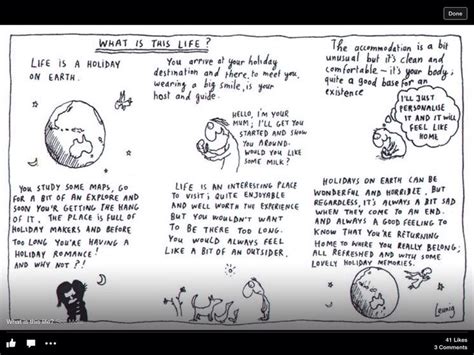 Done
WHAT IS THIS LIFE?
LIFE IS A HOLIDAY
ON EARTH.
YOU ARRIVE AT YOUR HOLIDAY
DESTINATION AND THERE, TO MEET YOU,
WEARING A BIG SMILE, IS YOUR
HOST AND GUIDE.
HELLO, I'M YOUR
MUM; I'LL GET YOU
STARTED AND SHOW
YOU AROUND.
WOULD YOU LIKE
SOME MILK?
THE ACCOMMODATION IS A BIT
UNUSUAL BUT IT'S CLEAN AND
COMFORTABLE - IT'S YOUR BODY;
QUITE A GOOD BASE FOR AN
EXISTENCE
I'LL JUST
PERSONALISE
IT AND IT WILL
FEEL LIKE
HOME
YOU STUDY SOME MAPS, GO
FOR A BIT OF AN EXPLORE AND
SOON YOU'R GETTING THE HANG
OF IT, THE PLACE IS FULL OF
HOLIDAY MAKERS AND BEFORE
TOO LONG YOU'RE HAVING A
HOLIDAY ROMANCE!
AND WHY NOT?!
LIFE IS AN INTERESTING PLACE
TO VISIT; QUITE ENJOYABLE
AND WELL WORTH THE EXPERIENCE
BUT YOU WOULDN'T WANT
TO BE THERE TOO LONG.
YOU WOULD ALWAYS FEEL
LIKE A BIT OF AN OUTSIDER.
HOLIDAYS ON EARTH CAN BE
WONDERFUL AND HORRIBLE, BUT
REGARDLESS, IT'S ALWAYS A BIT SAD
WHEN THEY COME TO AN END.
AND ALWAYS A GOOD FEELING TO
KNOW THAT YOU'RE RETURNING
HOME TO WHERE YOU REALLY BELONG;
ALL REFRESHED AND WITH SOME
LOVELY HOLIDAY MEMORIES.
Leunig
What is this life?
41 Likes
3 Comments